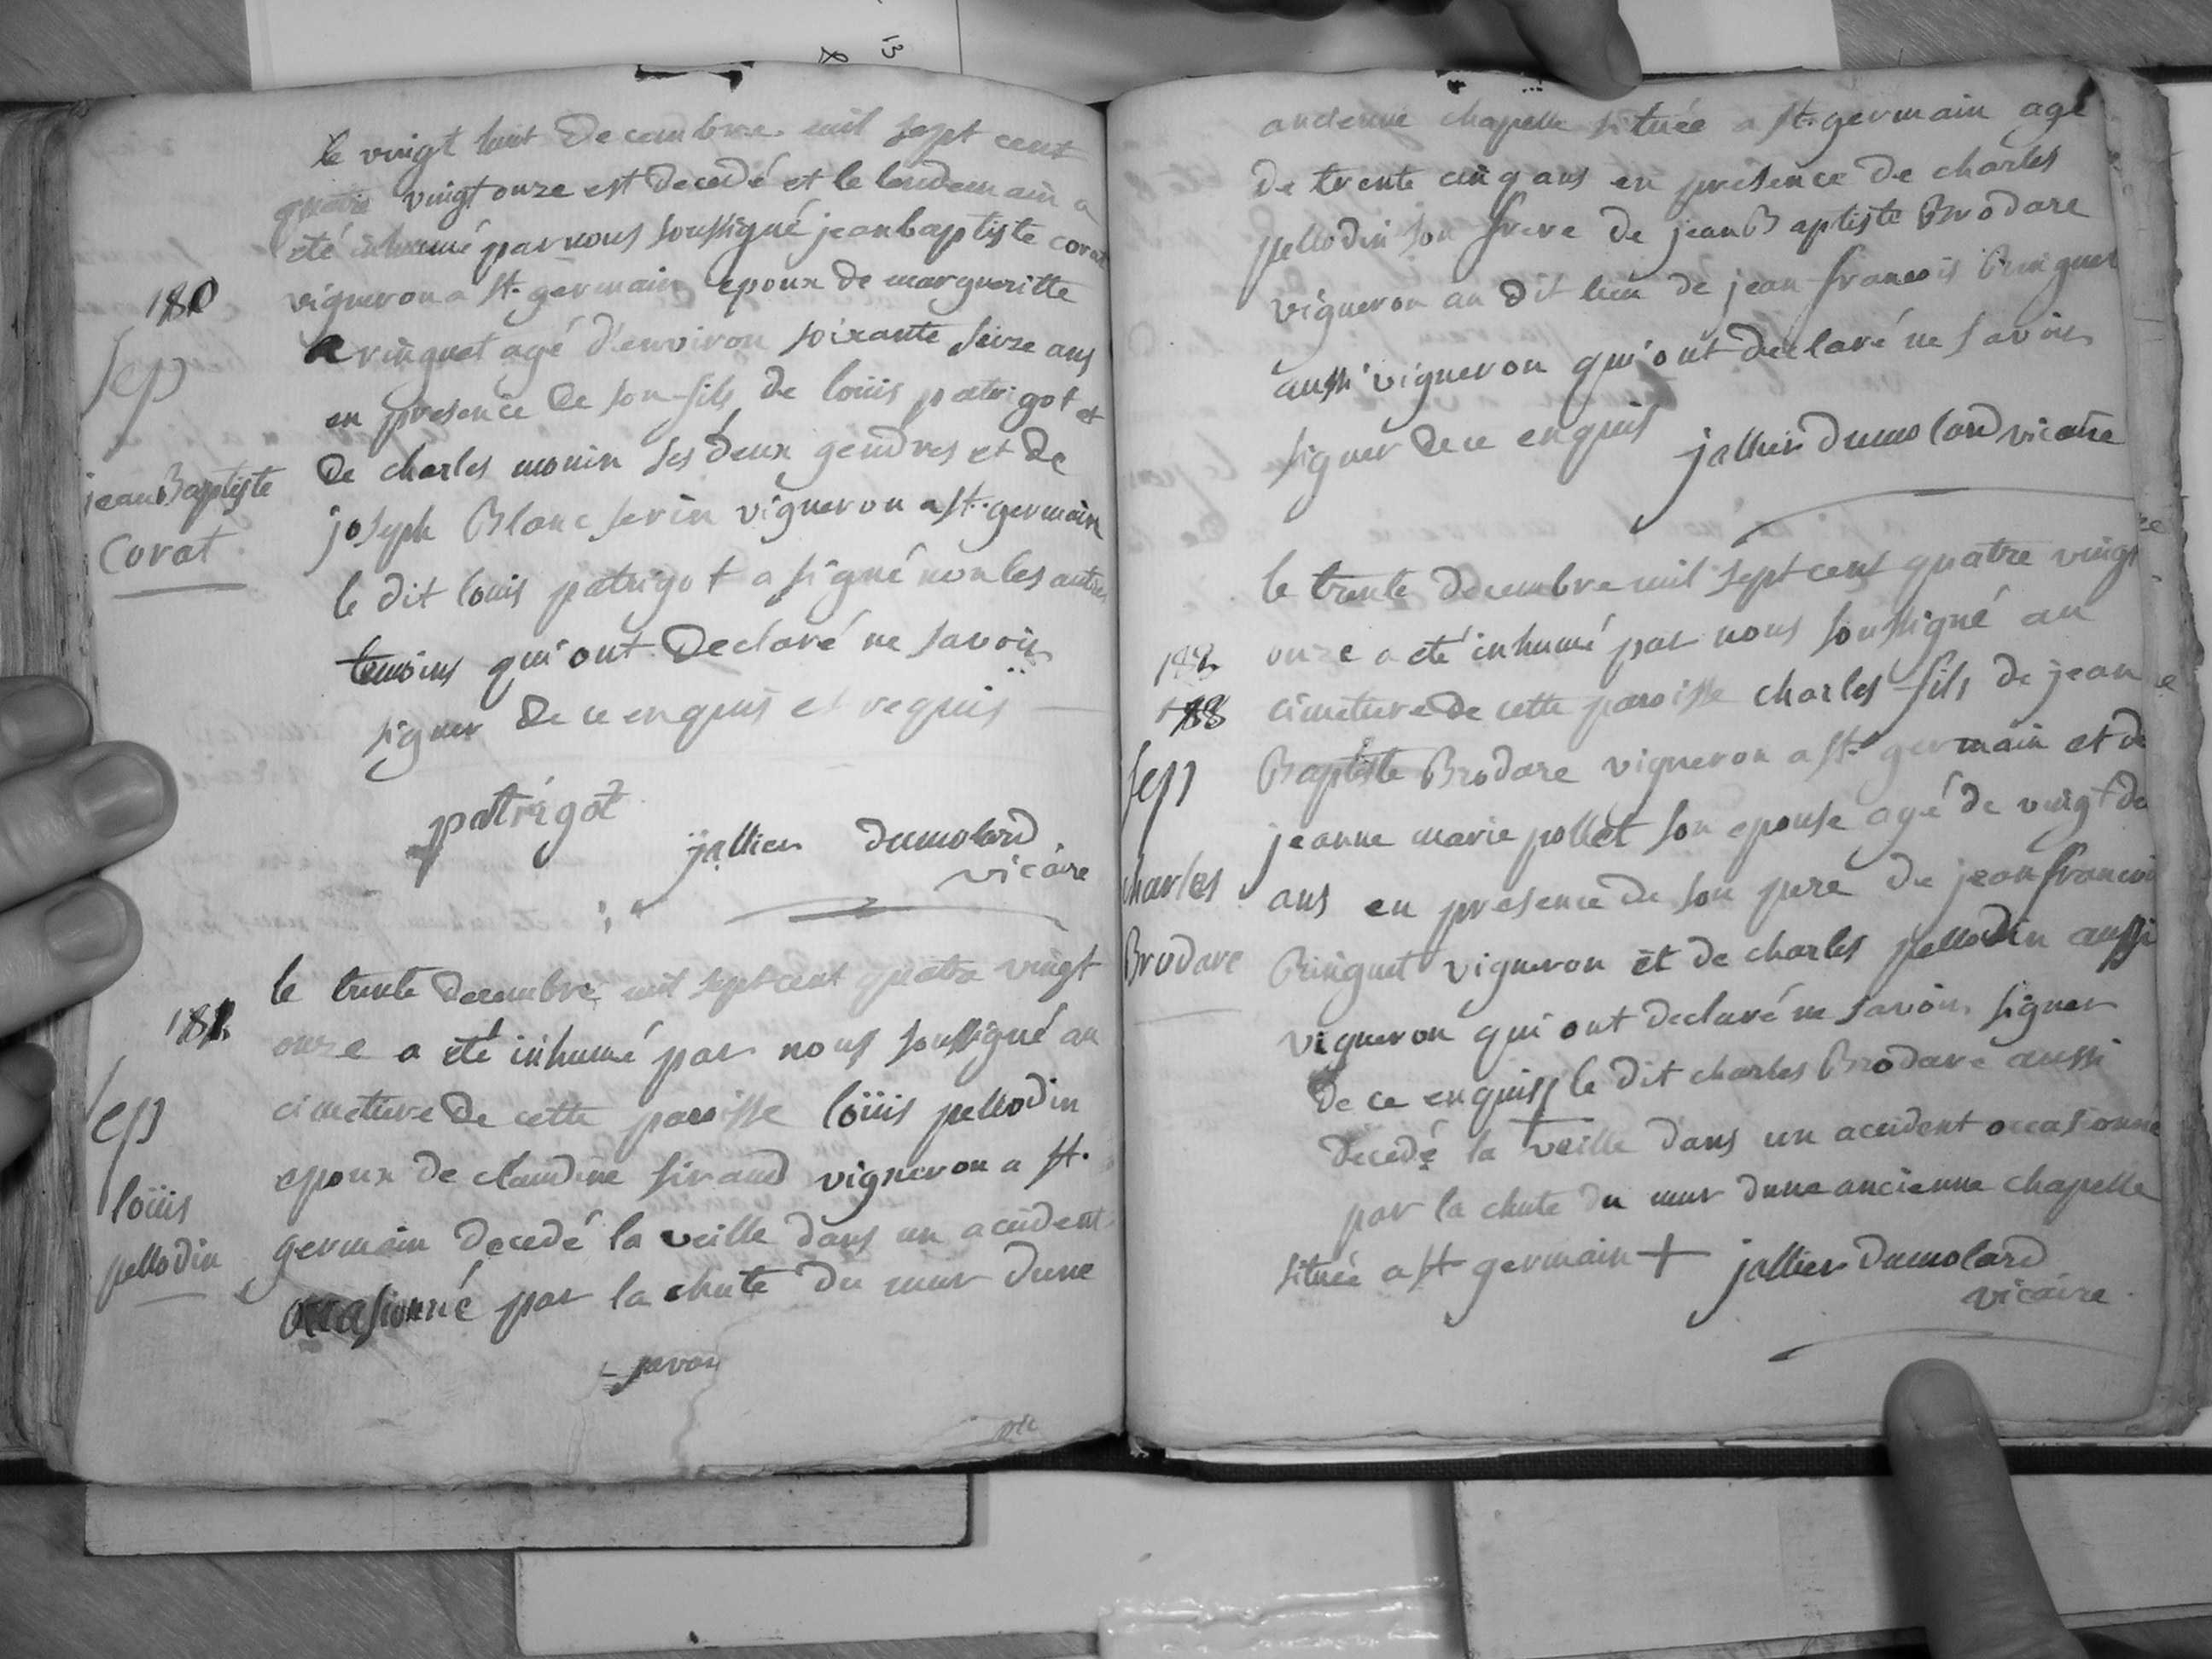 13
le vingt huit decembre mil sept cent
quatre vingt onze est decedé et le lendemain a
été inhumé par nous soussigné jean baptiste corat
180
vigneron a st. germain epoux de margueritte
ringuet agé d'environ soixante seize ans
sep
en presence de son fils de loüis patrigot et
de charles monin ses deux gendres et de
jean Baptiste
joseph Blanc serin vigneron a st. germain
Corat
le dit louis patrigot a signé non les autres
temoins qui ont declaré ne savoir
signer de ce enquis et requis
patrigot
jallier dumolard
vicaire
le trente decembre mil sept cent quatre vingt
181
onze a été inhumé par nous soussigné au
cimetiere de cette paroisse loüis pellodin
sep
epoux de claudine siraud vigneron a st.
loüis
germain decedé la veille dans un accident
pellodin
occasionné par la chute du mur dune
ancienne chapelle située a st. germain agé
de trente cinq ans en presence de charles
pellodin son frere de jean Baptiste Brodare
vigneron au dit lieu de jean francois Ringuet
aussi vigneron qui ont declaré ne savoir
signer de ce enquis jallier dumolard vicaire
le trente decembre mil sept cent quatre vingt
onze a été inhumé par nous soussigné au
182
188
cimetiere de cette paroisse charles fils de jean
Baptiste Brodare vigneron a st. germain et de
sep
jeanne marie pollet son epouse agé de vingt de
charles
ans en presence de son pere de jean francois
Brodare
Ringuet vigneron et de charles pellodin aussi
vigneron qui ont declaré ne savoir signer
de ce enquis le dit charles Brodare aussi
decedé la veille dans un accident occasionné
par la chute du mur dune ancienne chapelle
située a st germain + jallier dumolard
vicaire